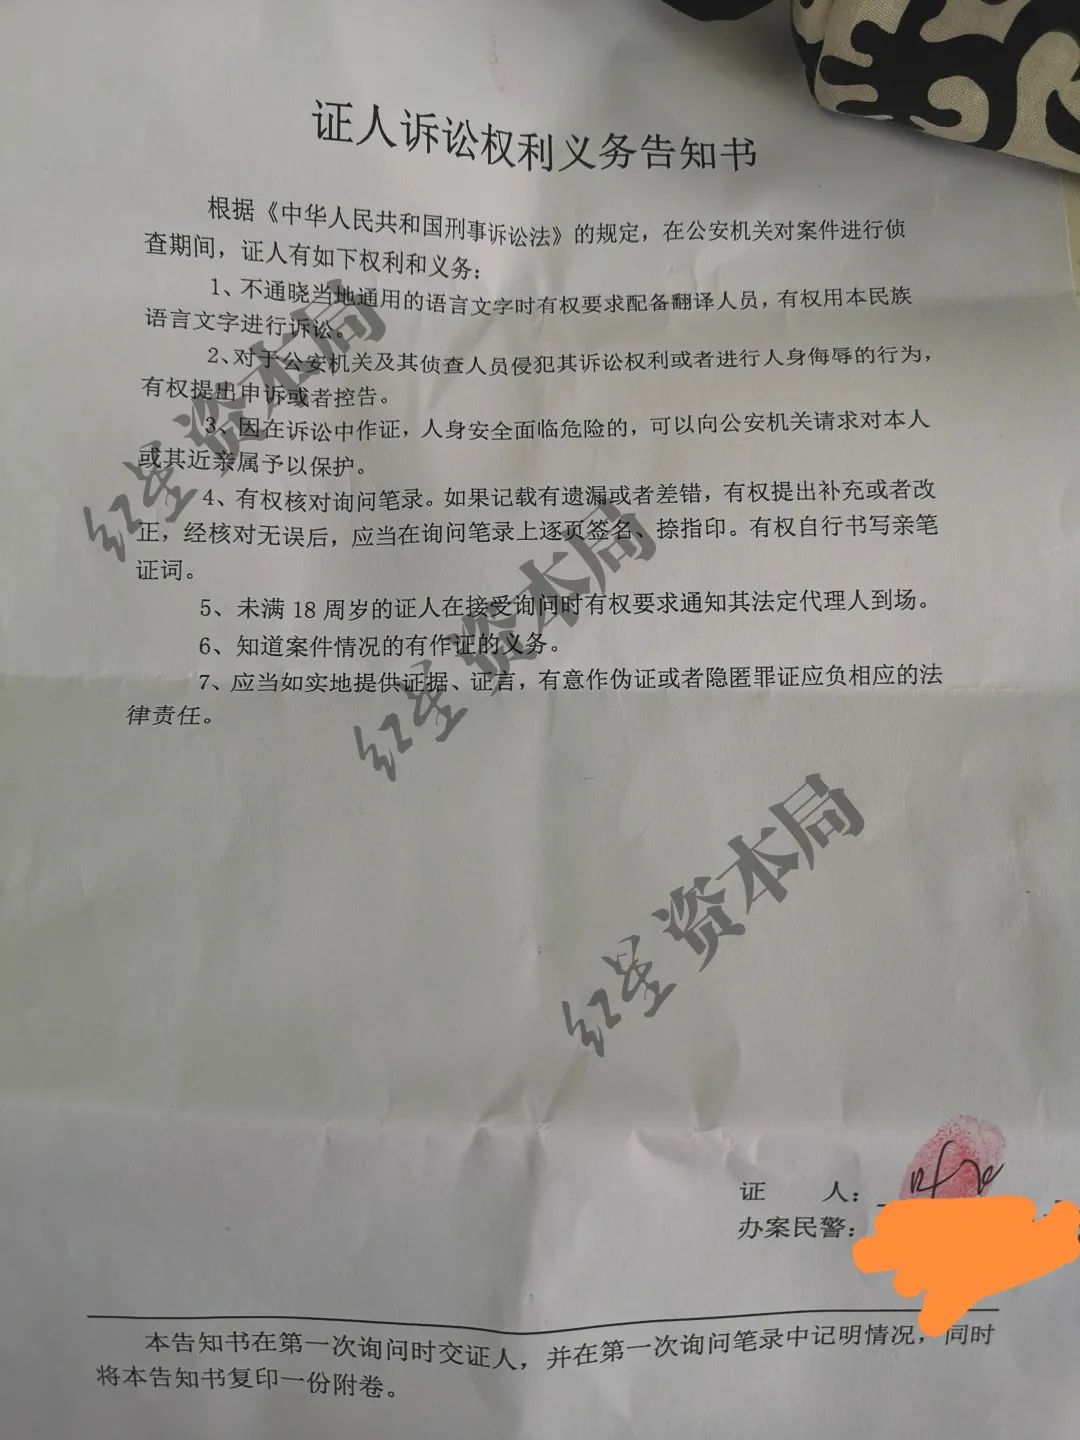 证人诉讼权利义务告知书
根据《中华人民共和国刑事诉讼法》的规定，在公安机关对案件进行侦
查期间，证人有如下权利和义务：
1、不通晓当地通用的语言文字时有权要求配备翻译人员，有权用本民族
语言文字进行诉讼。
2、对于公安机关及其侦查人员侵犯其诉讼权利或者进行人身侮辱的行为，
有权提出申诉或者控告。
3、因在诉讼中作证，人身安全面临危险的，可以向公安机关请求对本人
或其近亲属予以保护。
4、有权核对询问笔录。如果记载有遗漏或者差错，有权提出补充或者改
正，经核对无误后，应当在询问笔录上逐页签名、捺指印。有权自行书写亲笔
证词。
5、未满18周岁的证人在接受询问时有权要求通知其法定代理人到场。
6、知道案件情况的有作证的义务。
7、应当如实地提供证据、证言，有意作伪证或者隐匿罪证应负相应的法
律责任。
红星资本局
红星资本局
红星资本局
证 人：
办案民警：
本告知书在第一次询问时交证人，并在第一次询问笔录中记明情况，同时
将本告知书复印一份附卷。